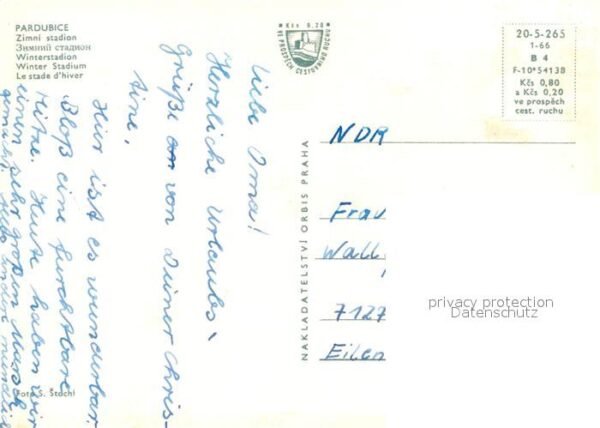 PARDUBICE
Zimní stadion
Зимний стадион
Winterstadion
Winter Stadium
Le stade d'hiver
Kčs 0,20
VE PROSPĚCH CESTOVNÍHO RUCHU
20-5-265
1-66
B 4
F-10*54138
Kčs 0,80
a Kčs 0,20
ve prospěch
cest. ruchu
Liebe Oma!
Herzliche Urlaubs-
Grüße von Deiner Chris-
tine,
Hier ist es wunderbar
Bloß eine furchtbare
Hitze. Heute haben wir
einen sehr großen Marsch
gemacht.
NAKLADATELSTVÍ ORBIS PRAHA
NDR
Frau
Wall
7127
Eilen
privacy protection
Datenschutz
Foto S. Štochl